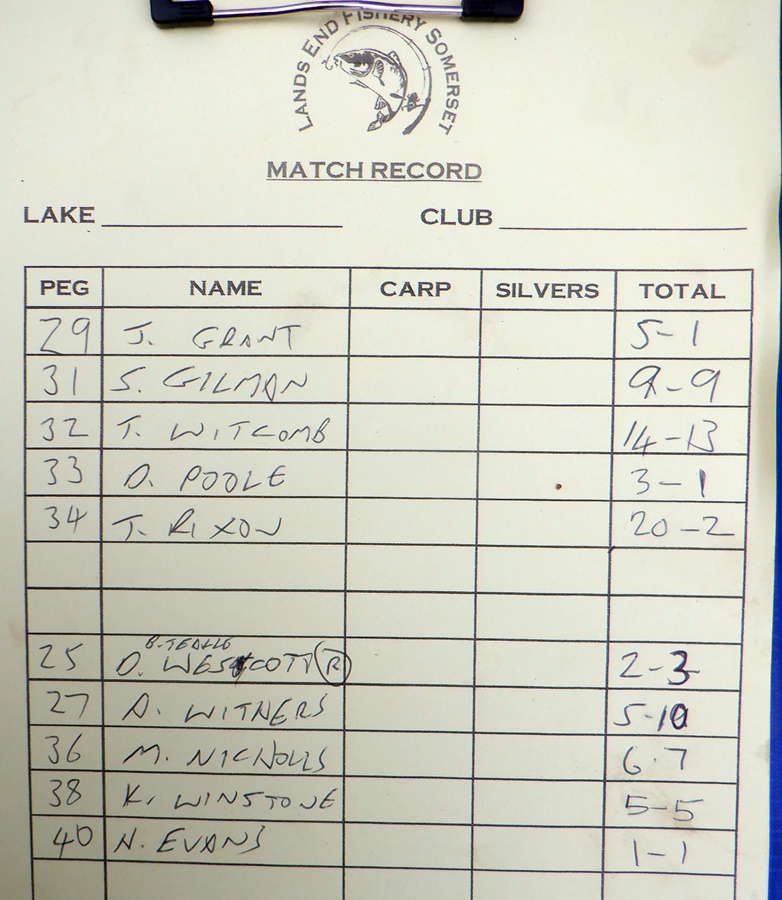 LANDS END FISHERY SOMERSET
MATCH RECORD
LAKE CLUB
PEG NAME CARP SILVERS TOTAL
29 J. GRANT 5-1
31 S. GILMAN 9-9
32 T. WITCOMB 14-13
33 D. POOLE 3-1
34 T. RIXON 20-2
B. TEALLE
25 D. WESTCOTT R 2-3
27 A. WITHERS 5-10
36 M. NICHOLLS 6.7
38 K. WINSTONE 5-5
40 N. EVANS 1-1